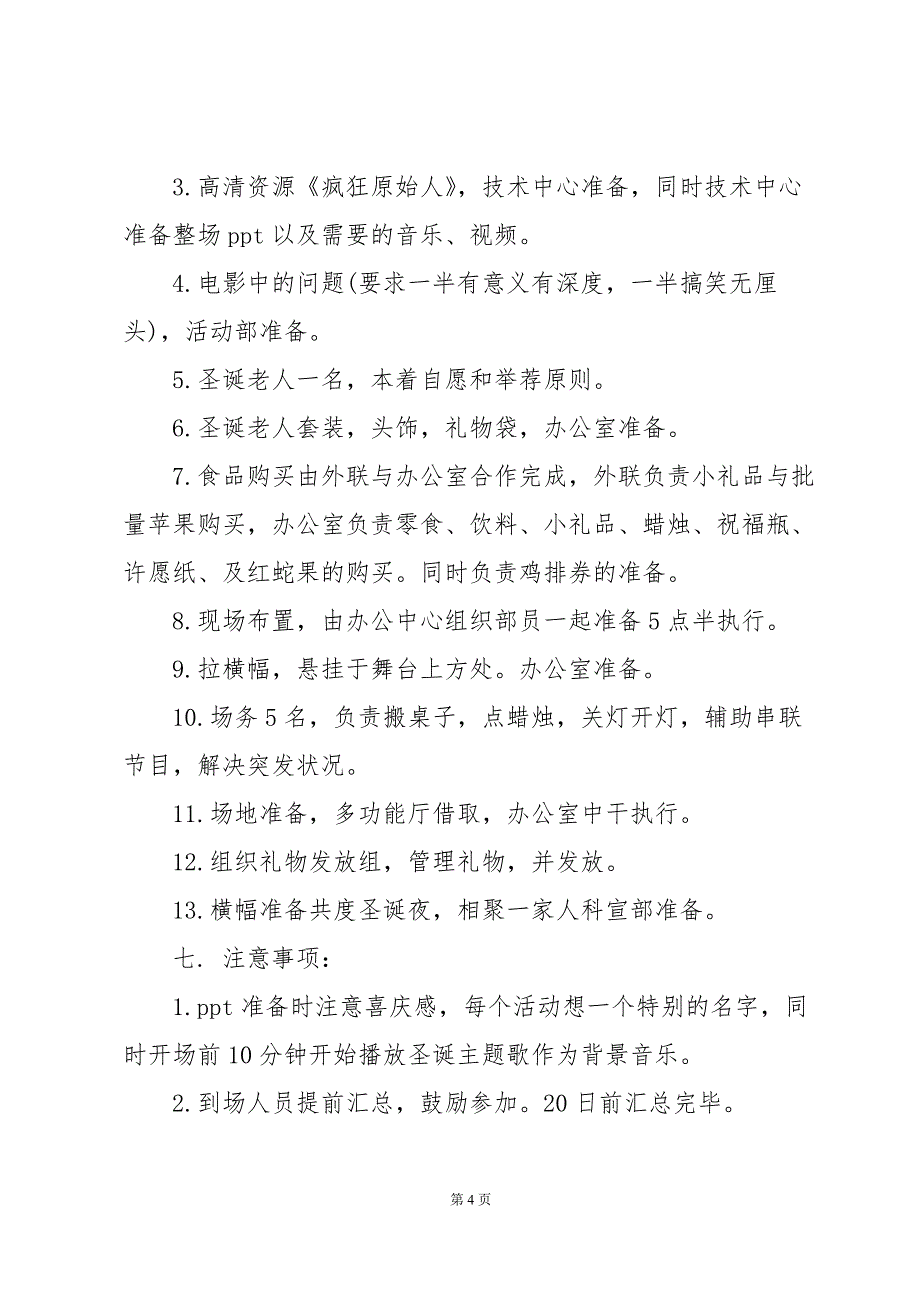 3.高清资源《疯狂原始人》，技术中心准备，同时技术中心
准备整场 ppt 以及需要的音乐、视频。
4.电影中的问题(要求一半有意义有深度，一半搞笑无厘
头)，活动部准备。
5.圣诞老人一名，本着自愿和举荐原则。
6.圣诞老人套装，头饰，礼物袋，办公室准备。
7.食品购买由外联与办公室合作完成，外联负责小礼品与批
量苹果购买，办公室负责零食、饮料、小礼品、蜡烛、祝福瓶、
许愿纸、及红蛇果的购买。同时负责鸡排券的准备。
8.现场布置，由办公中心组织部员一起准备 5 点半执行。
9.拉横幅，悬挂于舞台上方处。办公室准备。
10.场务 5 名，负责搬桌子，点蜡烛，关灯开灯，辅助串联
节目，解决突发状况。
11.场地准备，多功能厅借取，办公室中干执行。
12.组织礼物发放组，管理礼物，并发放。
13.横幅准备共度圣诞夜，相聚一家人科宣部准备。
七. 注意事项：
1.ppt 准备时注意喜庆感，每个活动想一个特别的名字，同
时开场前 10 分钟开始播放圣诞主题歌作为背景音乐。
2.到场人员提前汇总，鼓励参加。20 日前汇总完毕。
第 4 页